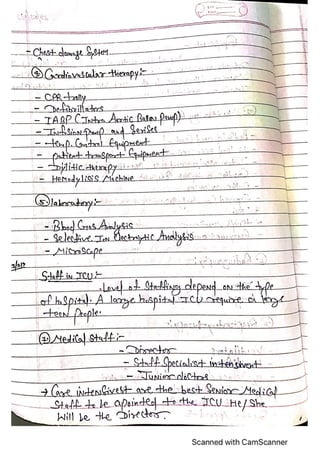 - Chest damage System
④ Cardiovascular therapy:-
- CPR trolly
- Defibrillators
- IABP (Intra Aortic Ballon Pump)
- Infusion Pump and
- temp. Control Equipment
- patient transport Equipment
- therapy
- Hemodylisis Machine
⑤ laboratory:-
- Blood Gas Analysis
- Selective Ion Electrolytic Analysis
- Microscope
Staff in ICU:-
Level of Staffing depend on the type
of hospital. A large hospital ICU require a large
team people.
① Medical staff:-
- Director
- Staff Specialist intensivist
- Junior doctors
→ Care intensivest are the best Senior Medical
Staff to be appointed to the ICU He/She
Will be the Director.
Scanned with CamScanner